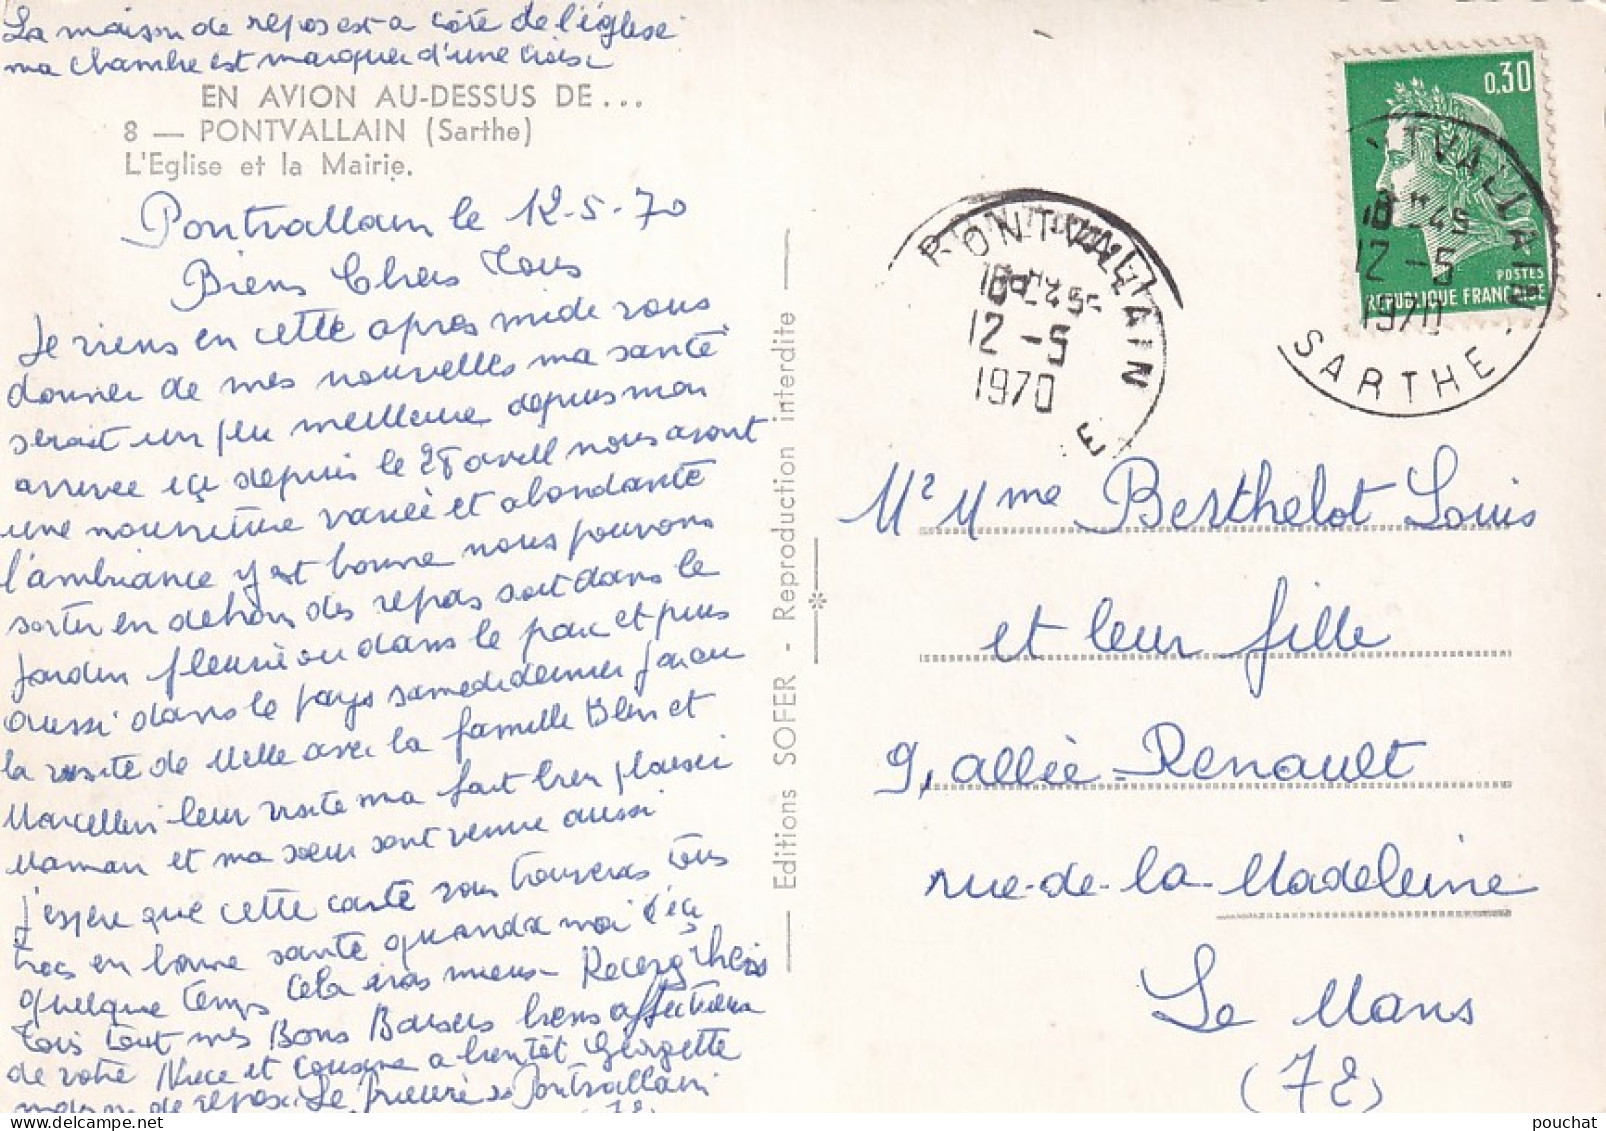 La maison de repos est a côté de l'église
ma chambre est marquer d'une croix
EN AVION AU-DESSUS DE...
8 — PONTVALLAIN (Sarthe)
L'Eglise et la Mairie.
Pontvallain le 12-5-70
Biens Chers Tous
Je viens en cette après midi vous
donner de mes nouvelles ma santé
serait un peu meilleure depuis mon
arrivée içi depuis le 28 avril nous avont
une nourriture variée et abondante
l'ambiance y est bonne nous pouvons
sortir en dehors des repas soit dans le
jardin fleurie ou dans le parc et puis
aussi dans le pays samedi dernier j'ai eu
la visite de Melle avec la famille Blin et
Marcellin leur visite ma fait bien plaisir
Maman et ma sœur sont venue aussi
J'espère que cette carte vous trouveras tous
trois en bonne santé quand a moi d'içi
quelque temps cela iras mieux Recevez chers
Tois tout mes Bons Baisers biens affectueux
de votre Niece et cousine a bientôt Georgette
maison de repos Le Prieuré Pontvallain
(72)
Editions SOFER - Reproduction interdite
0,30
POSTES
REPUBLIQUE FRANÇAISE
PONTVALLAIN
18 H 45
12 -5
1970
E
TVALLAIN
18 H 45
12 -5
1970
SARTHE
Mr Mme Berthelot Louis
et leur fille
9, allée Renault
rue-de-la Madeleine
Le Mans
(72)
www.pouchat